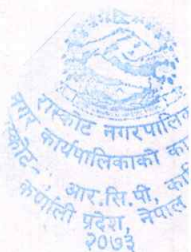 रास्कोट नगरपालि
नगर कार्यपालिकाको का
स्कोट-
आर.सि.पी, का
कर्णाली प्रदेश, नेपाल
२०७३